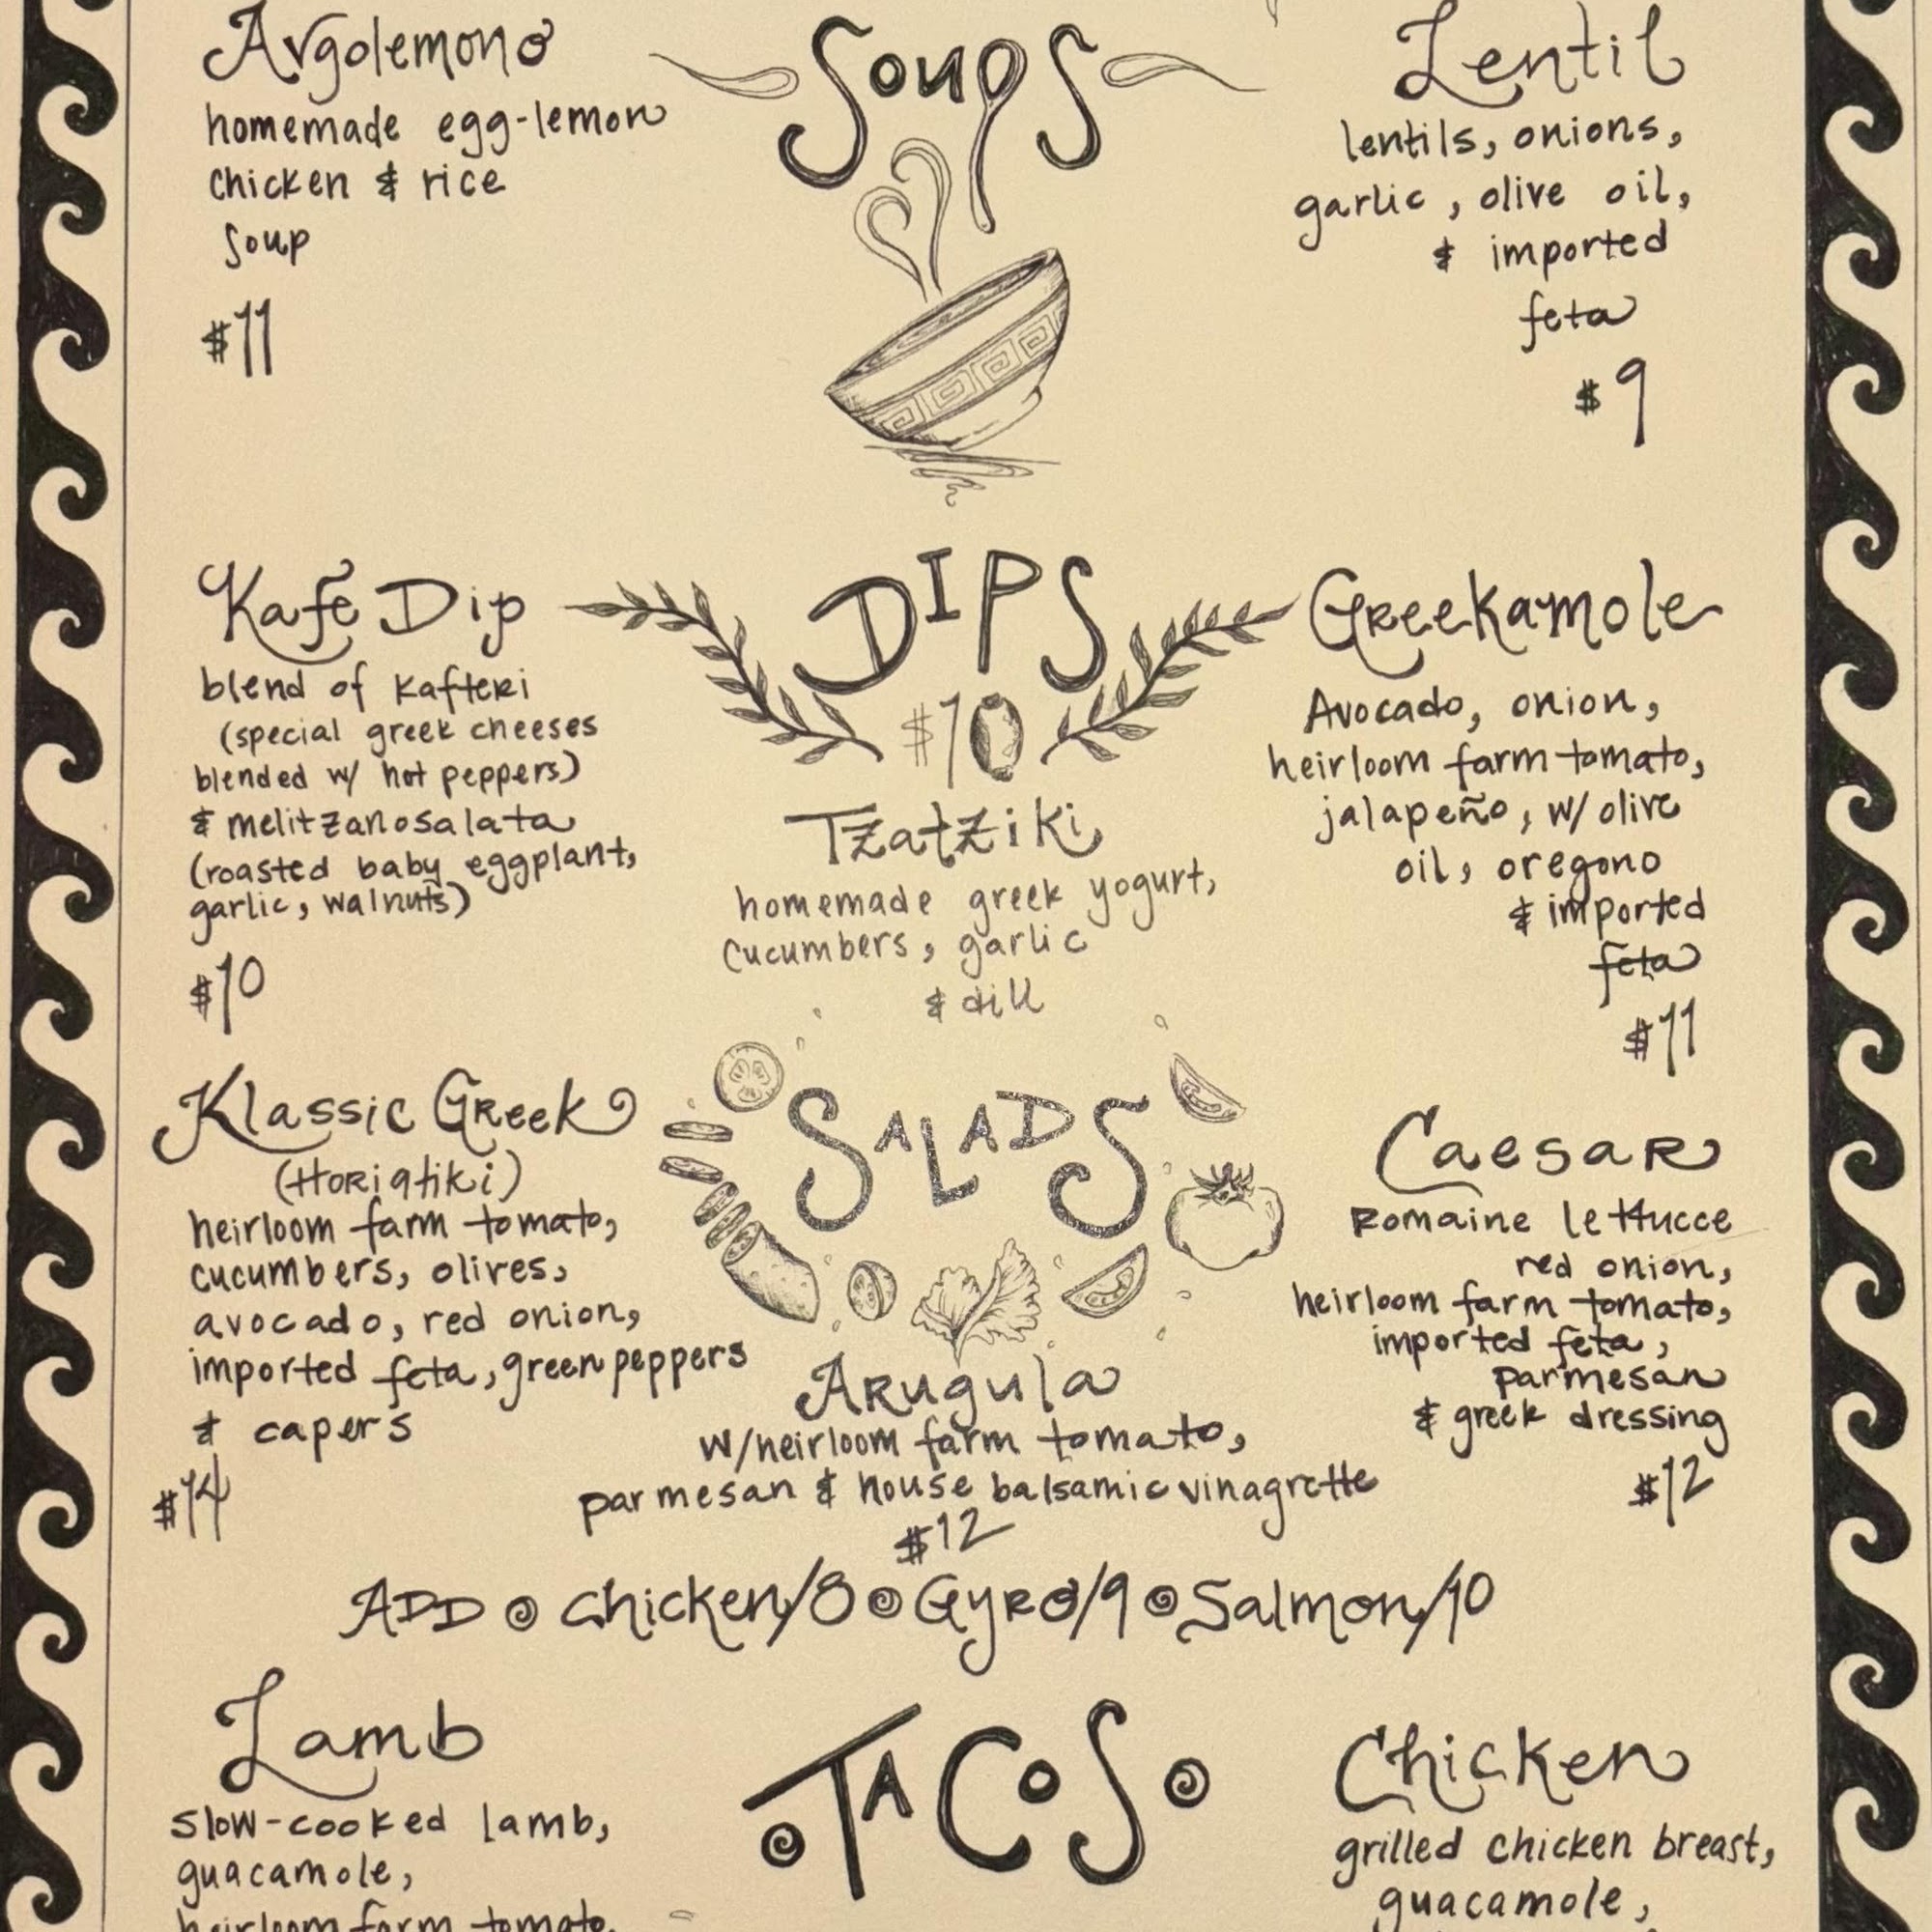 Soups
Avgolemono
homemade egg-lemon
chicken & rice
soup
$11
Lentil
lentils, onions,
garlic, olive oil,
& imported
feta
$9
DIPS
$10
Kafe Dip
blend of Kafteri
(special greek cheeses
blended w/ hot peppers)
& melitzanosalata
(roasted baby eggplant,
garlic, walnuts)
$10
Tzatziki
homemade greek yogurt,
cucumbers, garlic
& dill
Greekamole
Avocado, onion,
heirloom farm tomato,
jalapeño, w/ olive
oil, oregono
& imported
feta
$11
SALADS
Klassic Greek
(Horiatiki)
heirloom farm tomato,
cucumbers, olives,
avocado, red onion,
imported feta, green peppers
& capers
$14
Arugula
w/heirloom farm tomato,
parmesan & house balsamic vinagrette
$12
Caesar
Romaine lettucce
red onion,
heirloom farm tomato,
imported feta,
parmesan
& greek dressing
$12
ADD chicken/8 Gyro/9 Salmon/10
TACOS
Lamb
slow-cooked lamb,
guacamole,
heirloom farm tomato,
Chicken
grilled chicken breast,
guacamole,